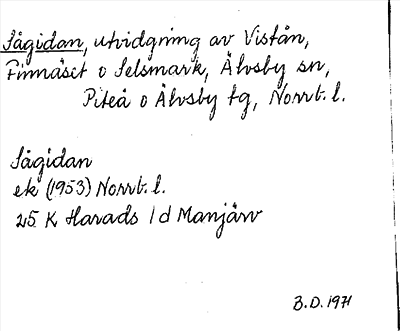 Sågidan, utvidgning av Vistån,
Finnäset o Selsmark, Älvsby sn,
Piteå o Älvsby tg, Norrb. l.
Sågidan
ek (1953) Norrb. l.
25 K Harads 1 d Manjärv
B.D. 1971